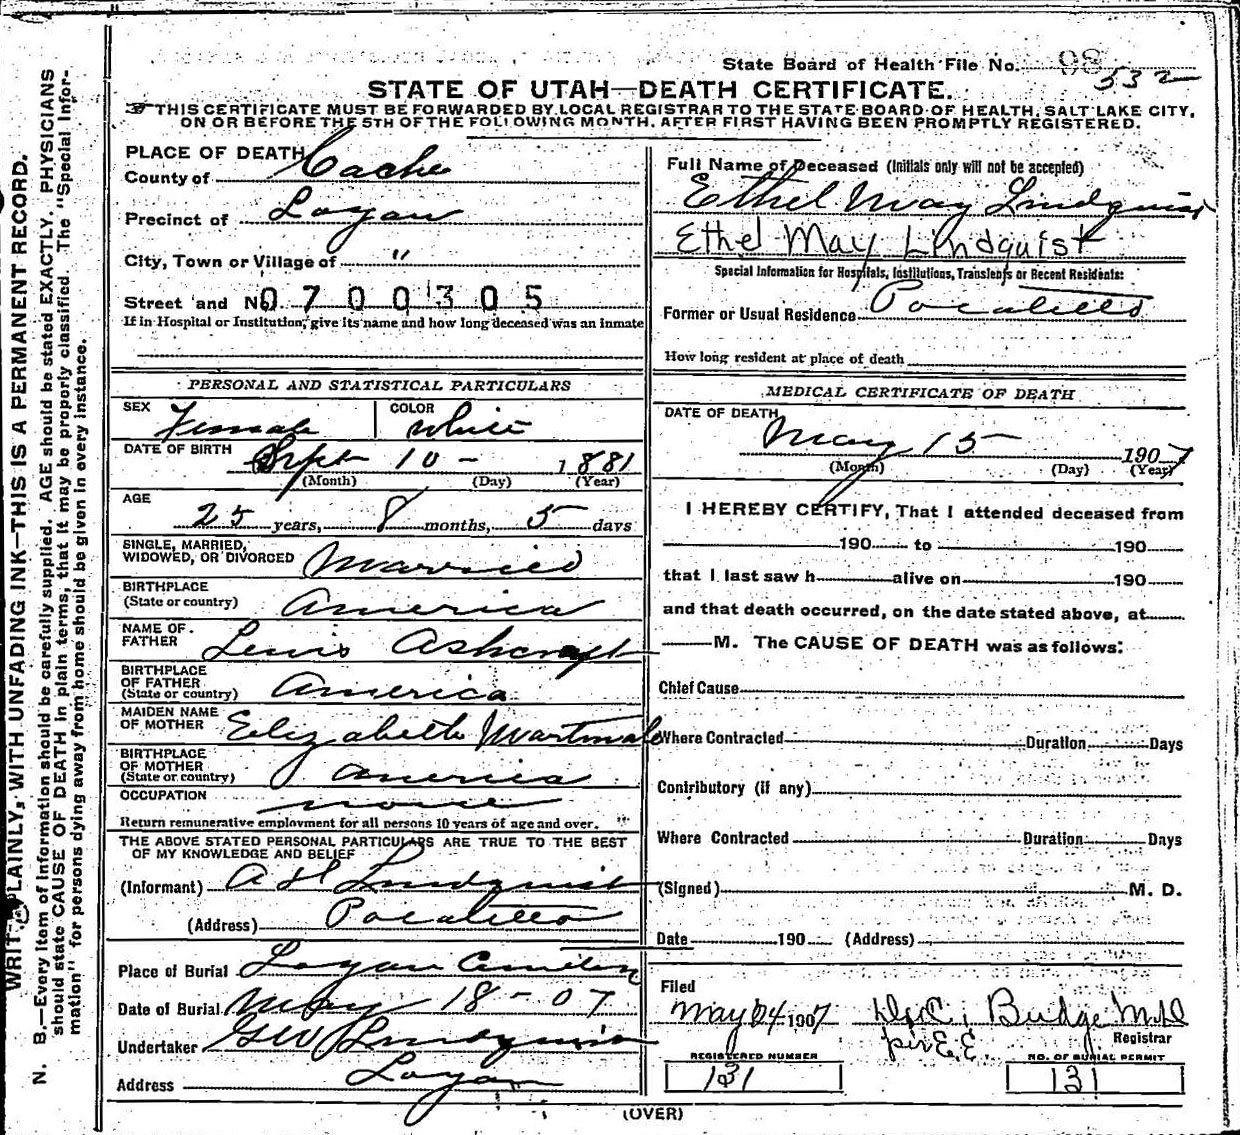 State Board of Health File No. 98
532
STATE OF UTAH—DEATH CERTIFICATE.
THIS CERTIFICATE MUST BE FORWARDED BY LOCAL REGISTRAR TO THE STATE BOARD OF HEALTH, SALT LAKE CITY,
ON OR BEFORE THE 5TH OF THE FOLLOWING MONTH, AFTER FIRST HAVING BEEN PROMPTLY REGISTERED.
PLACE OF DEATH
County of Cache
Precinct of Logan
City, Town or Village of "
Street and No. 0700305
If in Hospital or Institution, give its name and how long deceased was an inmate
PERSONAL AND STATISTICAL PARTICULARS
SEX Female COLOR White
DATE OF BIRTH Sept 10 - 1881
(Month) (Day) (Year)
AGE
25 years, 8 months, 5 days
SINGLE, MARRIED,
WIDOWED, OR DIVORCED Married
BIRTHPLACE
(State or country) America
NAME OF
FATHER Lewis Ashcraft
BIRTHPLACE
OF FATHER
(State or country) America
MAIDEN NAME
OF MOTHER Elizabeth Martindale
BIRTHPLACE
OF MOTHER
(State or country) America
OCCUPATION none
Return remunerative employment for all persons 10 years of age and over.
THE ABOVE STATED PERSONAL PARTICULARS ARE TRUE TO THE BEST
OF MY KNOWLEDGE AND BELIEF
(Informant) A H Lindquist
(Address) Pocatello
Place of Burial Logan Cemetery
Date of Burial May 18 - 07
Undertaker GW Lindquist
Address Logan
Full Name of Deceased (Initials only will not be accepted)
Ethel May Lindquist
Ethel May Lindquist
Special Information for Hospitals, Institutions, Transients or Recent Residents:
Former or Usual Residence Pocatello
How long resident at place of death
MEDICAL CERTIFICATE OF DEATH
DATE OF DEATH
May 15 1907
(Month) (Day) (Year)
I HEREBY CERTIFY, That I attended deceased from
190 to 190
that I last saw h alive on 190
and that death occurred, on the date stated above, at
M. The CAUSE OF DEATH was as follows:
Chief Cause
Where Contracted Duration Days
Contributory (if any)
Where Contracted Duration Days
(Signed) M. D.
Date 190 (Address)
Filed
May 24 1907 Budge M.D
Registrar
per E.E.
REGISTERED NUMBER NO. OF BURIAL PERMIT
131 131
(OVER)
WRITE PLAINLY, WITH UNFADING INK—THIS IS A PERMANENT RECORD.
N. B.—Every item of information should be carefully supplied. AGE should be stated EXACTLY. PHYSICIANS
should state CAUSE OF DEATH in plain terms, that it may be properly classified. The "Special Infor-
mation" for persons dying away from home should be given in every instance.